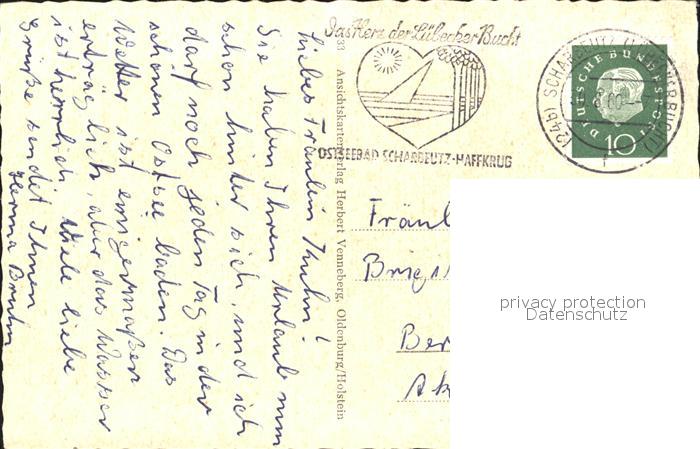 Liebes Fräulein Kuhn!
Sie haben Ihren Urlaub nun
schon hinter sich, und ich
darf noch jeden Tag in der
schönen Ostsee baden. Das
Wetter ist einigermaßen
erträglich, aber das Wasser
ist herrlich. Viele liebe
Grüße sendet Ihnen
Henna Bruhn
33 Ansichtskartenverlag Herbert Venneberg, Oldenburg/Holstein
Das Herz der Lübecker Bucht
OSTSEEBAD SCHARBEUTZ-HAFFKRUG
(24b) SCHARBEUTZ
DEUTSCHE BUNDESPOST
10
Fräul
Ber
privacy protection
Datenschutz